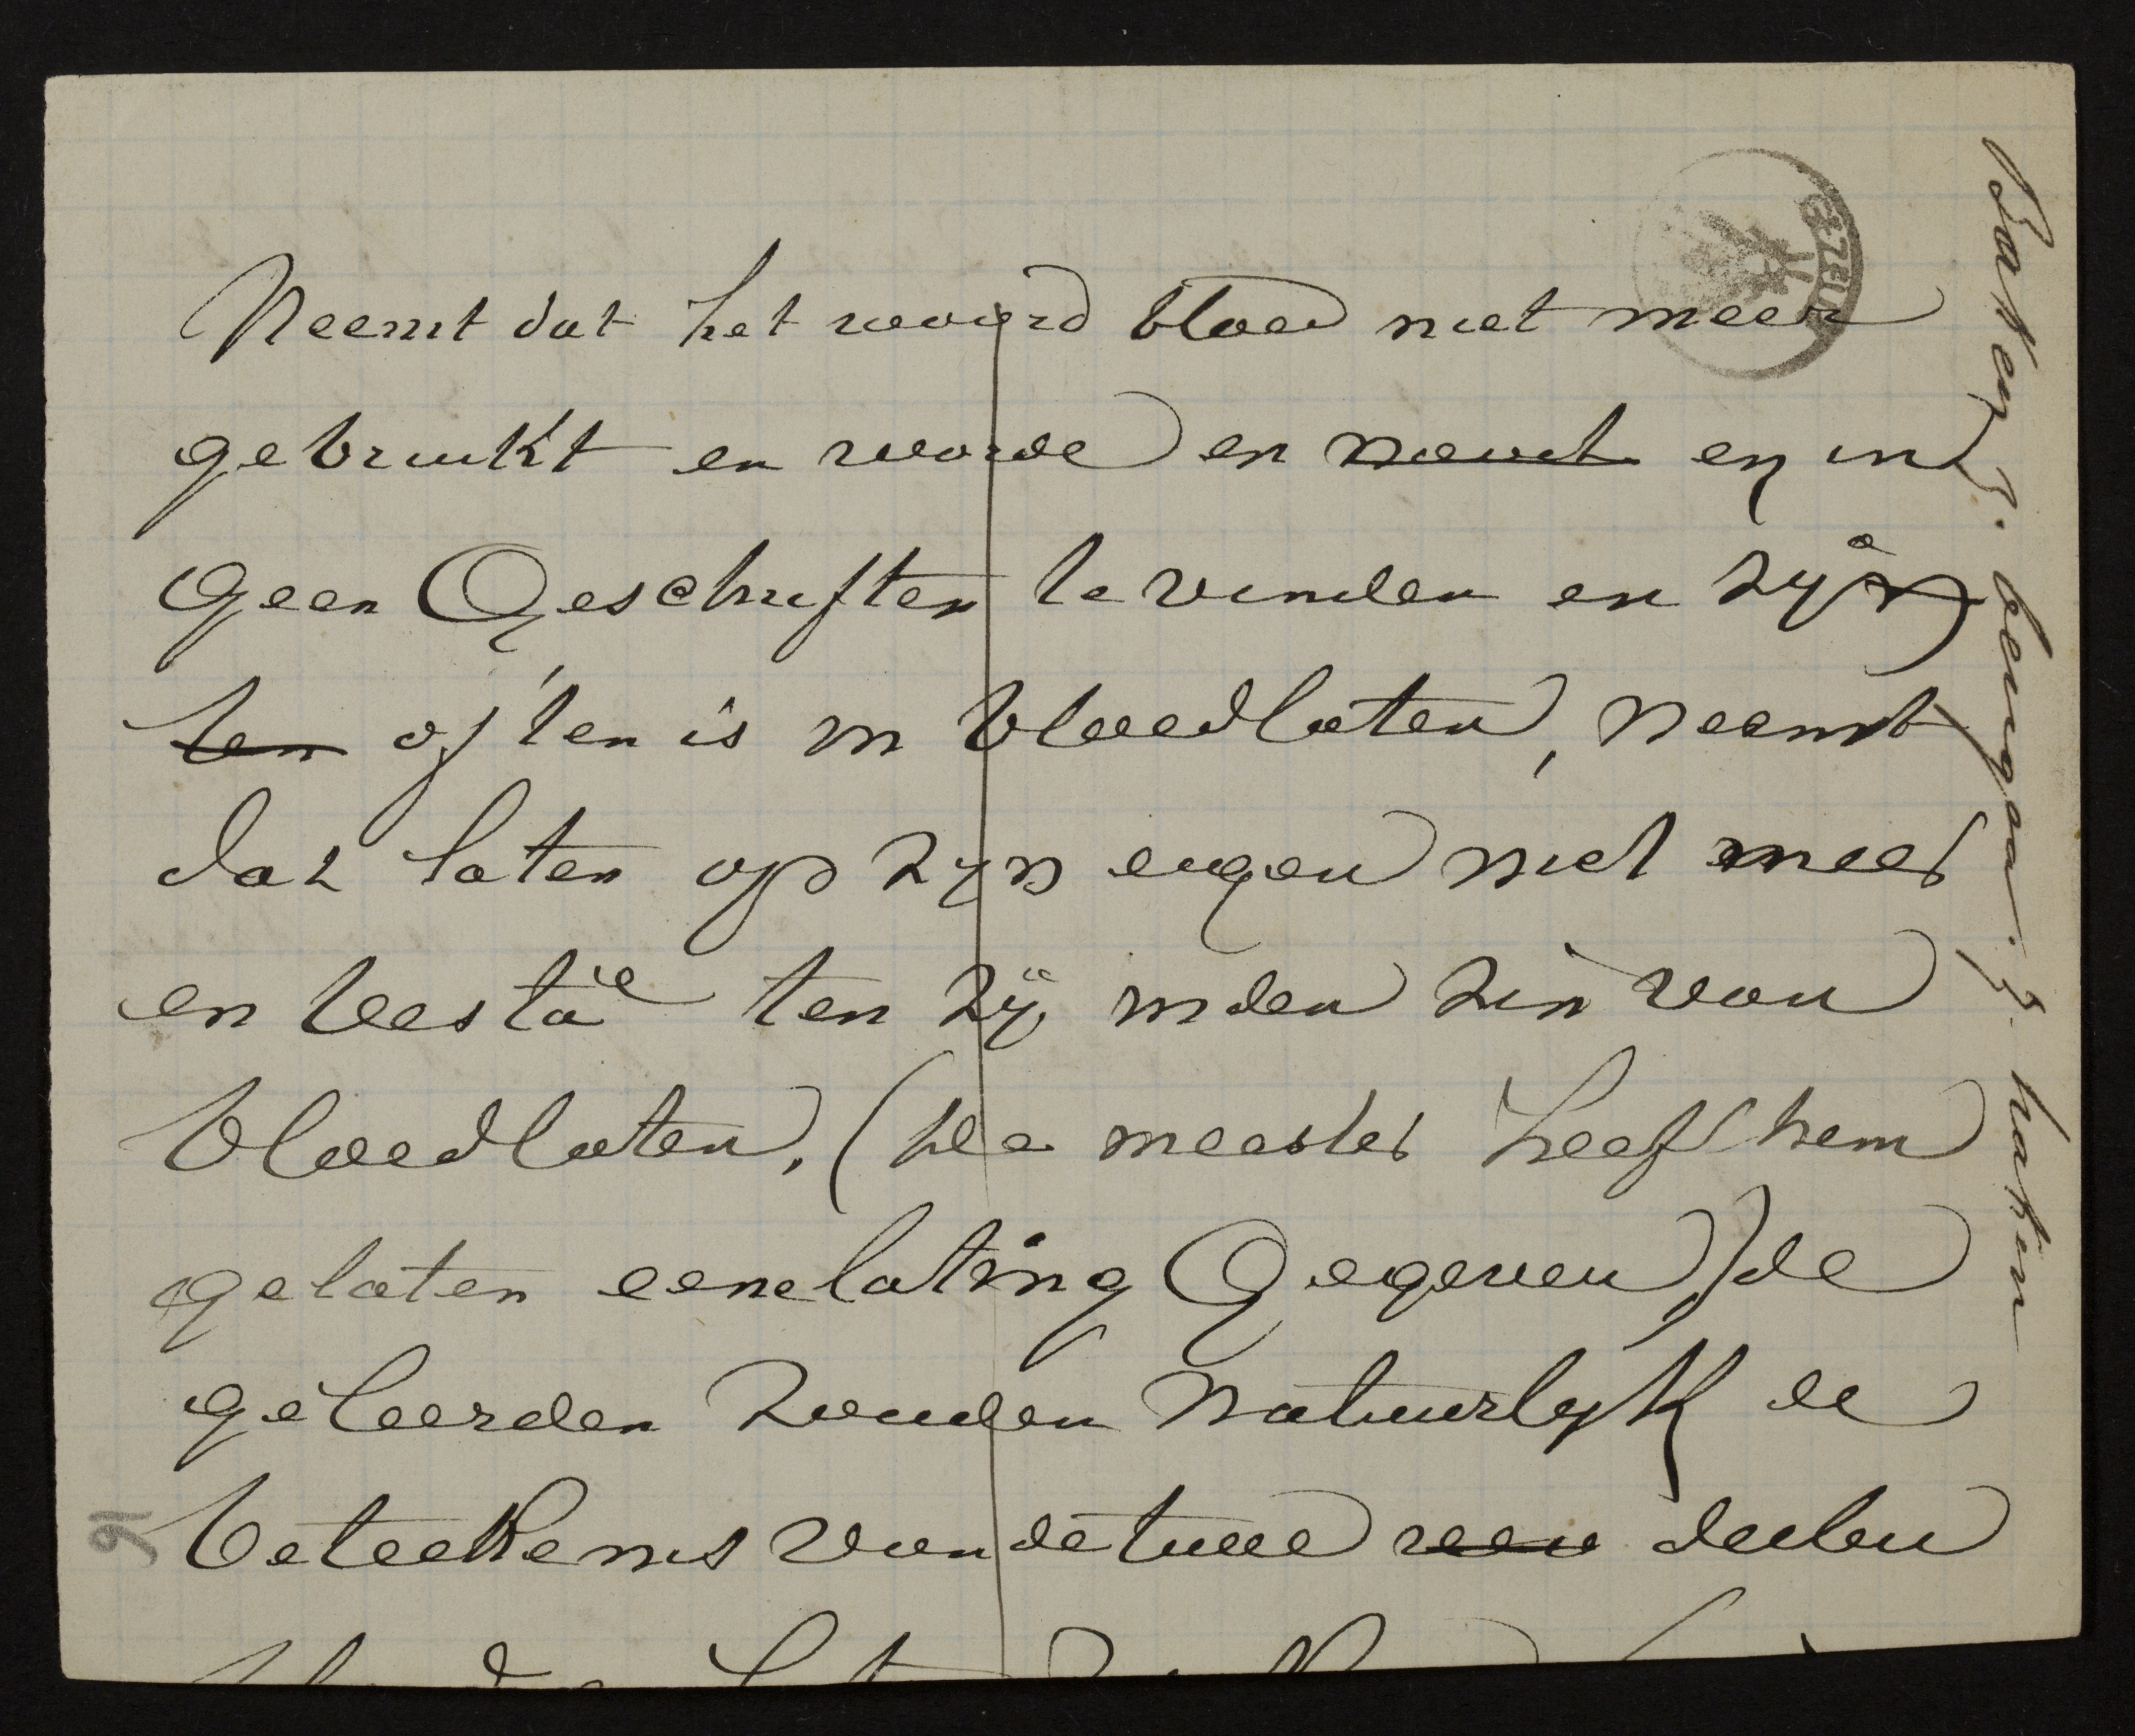 Neemt dat het woord bloed niet meer
gebruikt en worde en en in
geen Geschriften te vinden en zij
ten of ten is in bloedlaten, neemt
dat laten op zyn eigen niet meer
en besta ten zij in den zin van
bloedlaten, (de meester heeft hem
gelaten eene lating Gegeven) de
geleerden zouden natuurlyk de
beteekenis van de twee deelen
91